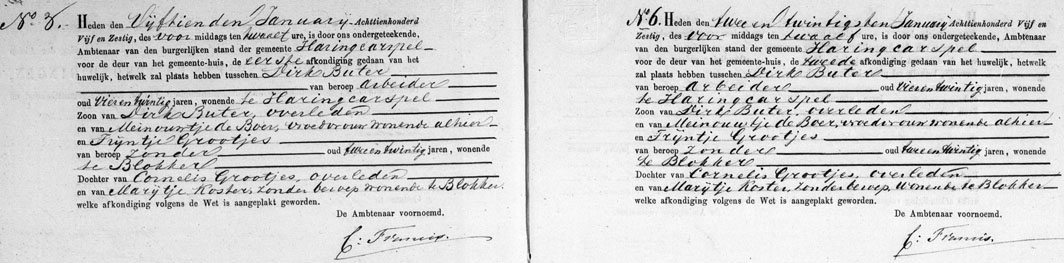 No 3. Heden den Vijftienden January Achttienhonderd
Vijf en Zestig, des voor middags ten twaalf ure, is door ons ondergeteekende,
Ambtenaar van den burgerlijken stand der gemeente Haringcarspel
voor de deur van het gemeente-huis, de eerste afkondiging gedaan van het
huwelijk, hetwelk zal plaats hebben tusschen Dirk Buter
van beroep arbeider
oud Vierentwintig jaren, wonende te Haringcarspel
Zoon van Dirk Buter, overleden
en van Meinouwtje de Boer, vroedvrouw wonende alhier
en Trijntje Grootjes
van beroep zonder oud tweeentwintig jaren, wonende
te Blokker
Dochter van Cornelis Grootjes, overleden
en van Marijtje Koster, zonder beroep wonende te Blokker
welke afkondiging volgens de Wet is aangeplakt geworden.
De Ambtenaar voornoemd.
C: Francis.
No 6. Heden den twee en twintigsten January Achttienhonderd Vijf en
Zestig, des voor middags ten twaalf ure, is door ons ondergeteekende, Ambtenaar
van den burgerlijken stand der gemeente Haringcarspel
voor de deur van het gemeente-huis, de tweede afkondiging gedaan van het huwelijk, hetwelk
zal plaats hebben tusschen Dirk Buter
van beroep arbeider oud Vierentwintig jaren, wonende
te Haringcarspel
Zoon van Dirk Buter, overleden
en van Meinouwtje de Boer, vroedvrouw wonende alhier
en Trijntje Grootjes
van beroep zonder oud tweeentwintig jaren, wonende
te Blokker
Dochter van Cornelis Grootjes, overleden
en van Marijtje Koster, zonder beroep, wonende te Blokker
welke afkondiging volgens de Wet is aangeplakt geworden.
De Ambtenaar voornoemd.
C: Francis.